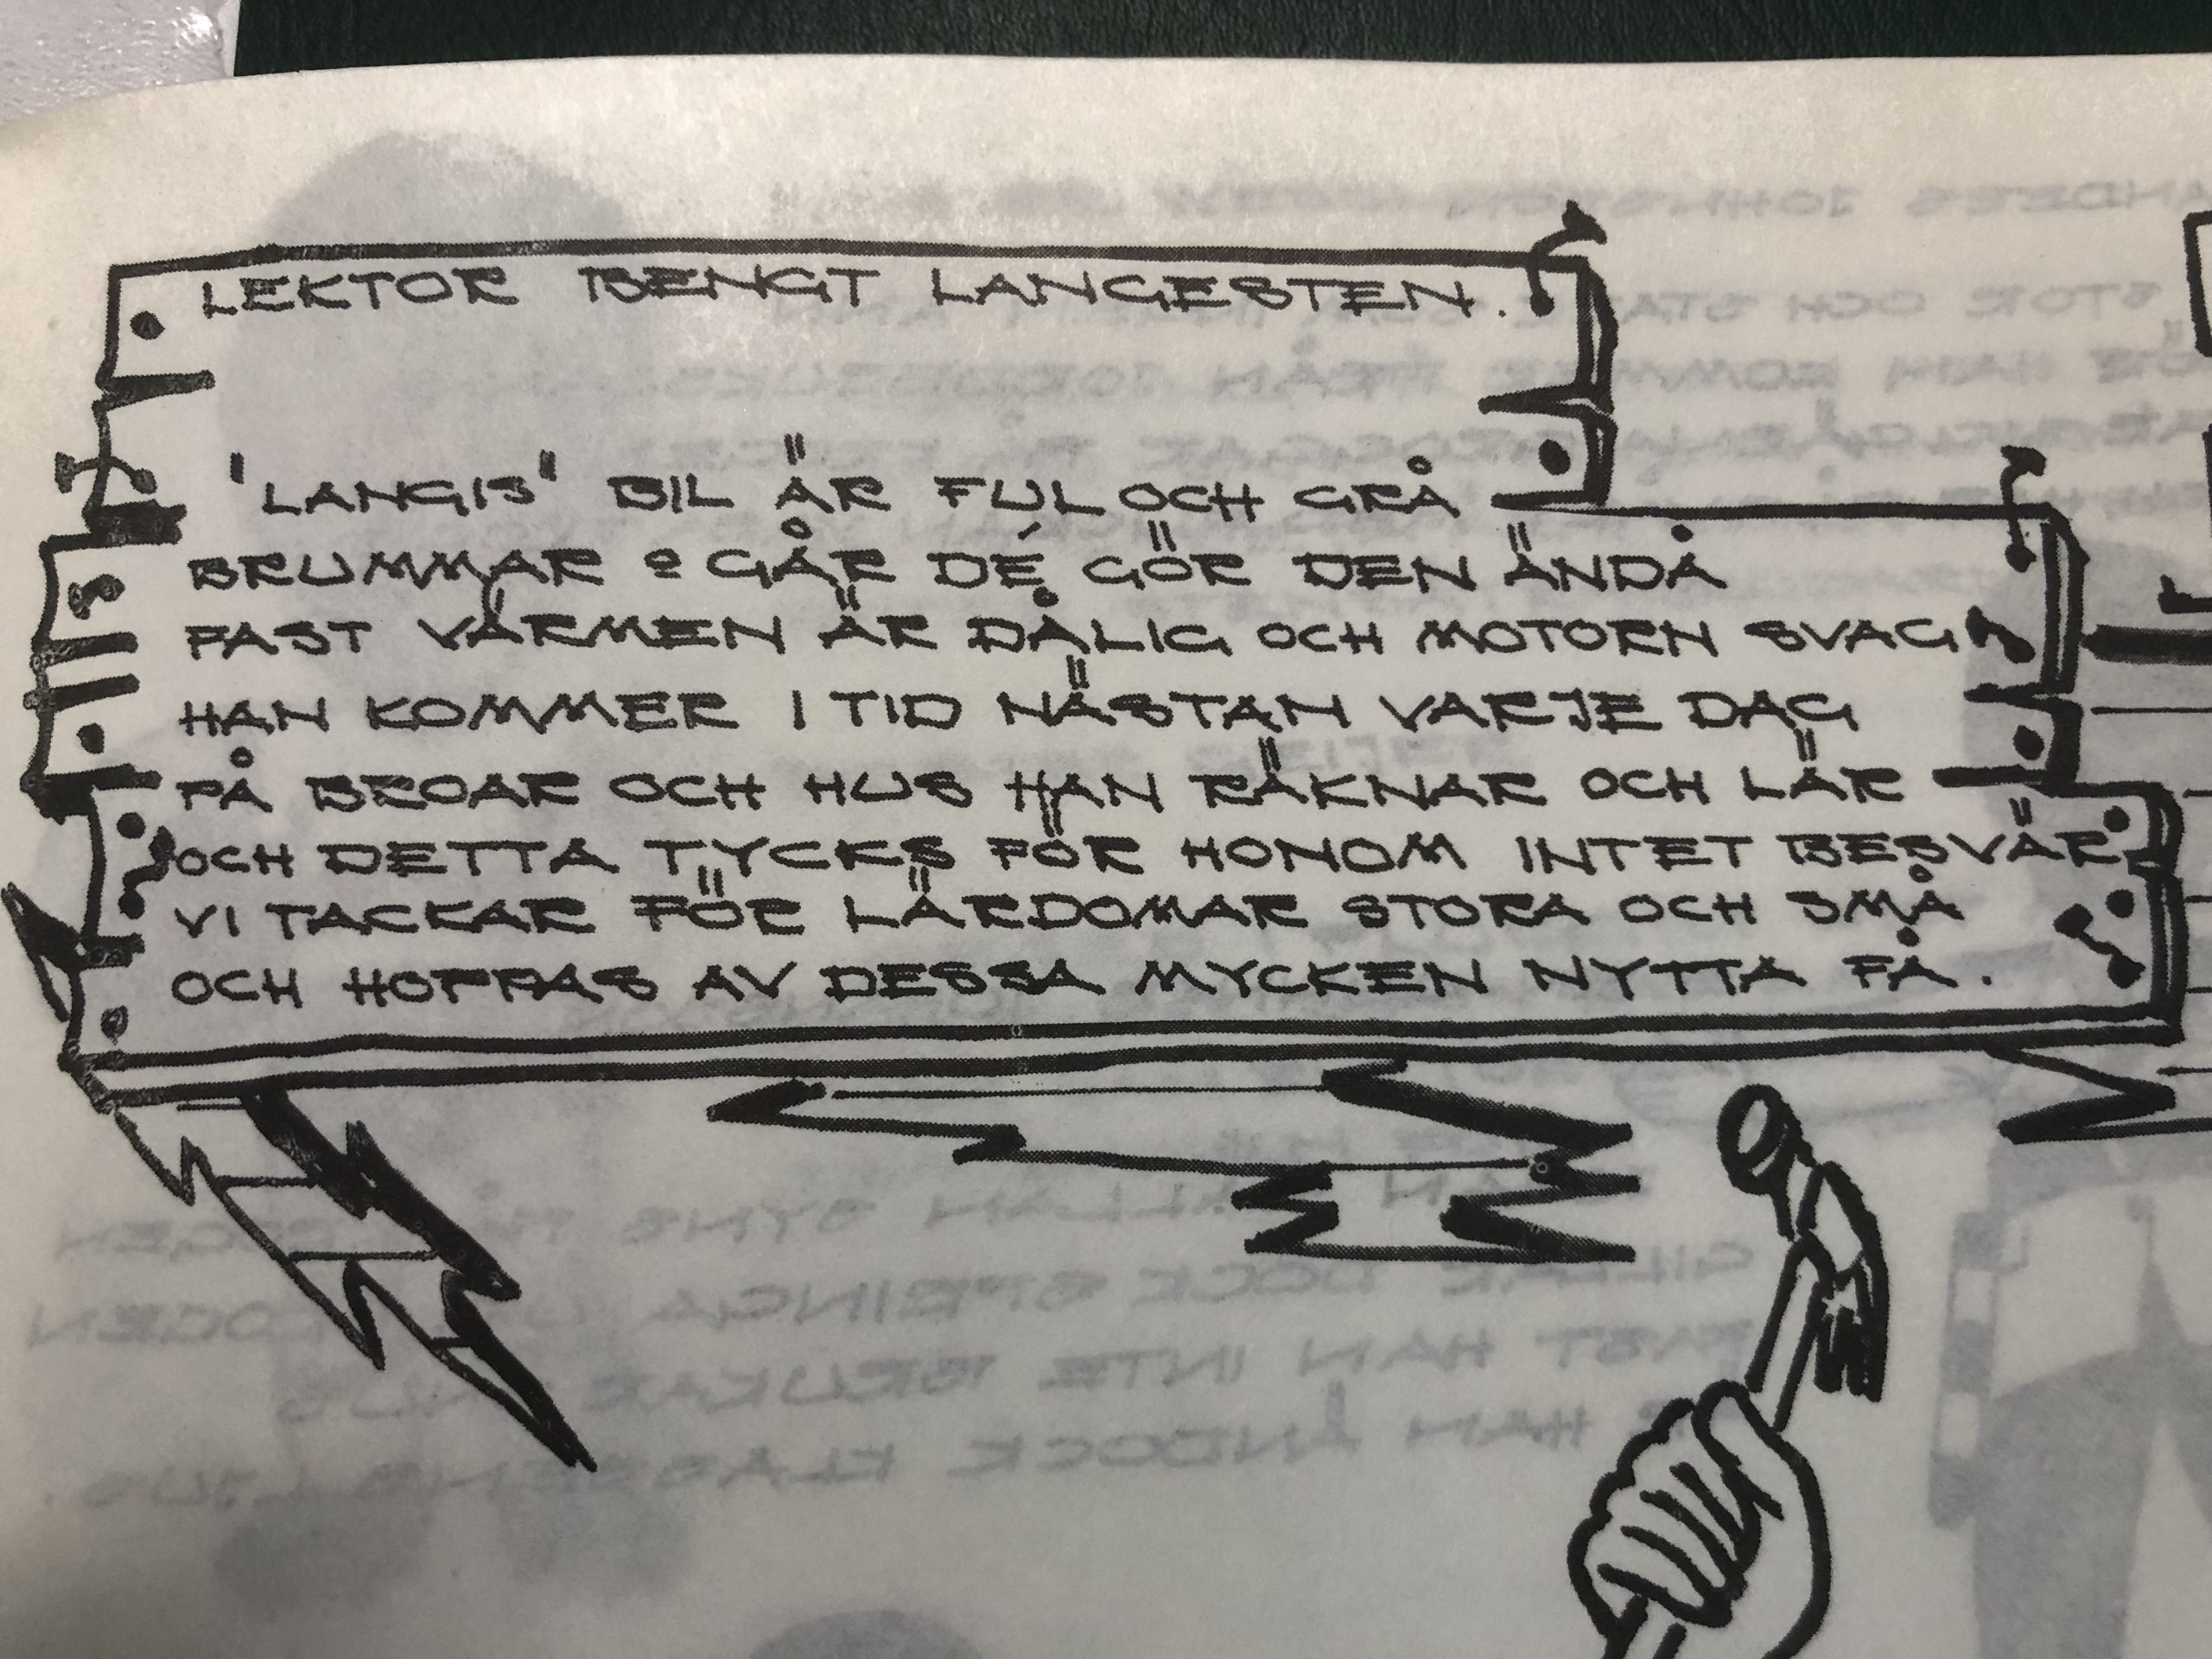 LEKTOR BENGT LANGESTEN.
'LANGIS' BIL ÄR FUL OCH GRÅ
BRUMMAR o GÅR DÉ GÖR DEN ÄNDÅ
FAST VÄRMEN ÄR DÅLIG OCH MOTORN SVAG
HAN KOMMER I TID NÄSTAN VARJE DAG
PÅ BROAR OCH HUS HAN RÄKNAR OCH LÄR
OCH DETTA TYCKS FÖR HONOM INTET BESVÄR
VI TACKAR FÖR LÄRDOMAR STORA OCH SMÅ
OCH HOPPAS AV DESSA MYCKEN NYTTA FÅ.